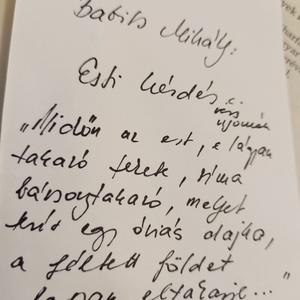 Babits Mihály:
Esti kérdés c.
"Midőn az est, e lágyan
takaró fekete, síma
bársonytakaró, melyet
terít egy óriás dajka,
a féltett földet
lassan eltakarja..."